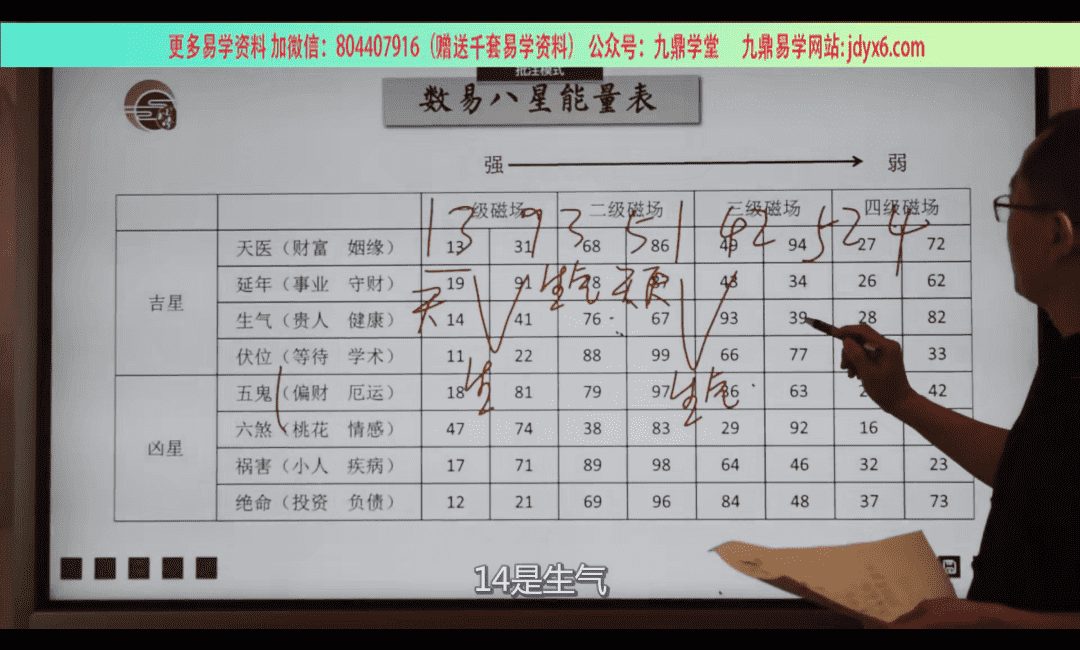 更多易学资料 加微信：804407916（赠送千套易学资料） 公众号：九鼎学堂 九鼎易学网站:jdyx6.com
批注模式
数易八星能量表
强 弱
级磁场 二级磁场 三级磁场 四级磁场
1 3 9 3 5 1 4 2 5 2 4
吉星
天医（财富 姻缘） 13 31 68 86 49 94 27 72
延年（事业 守财） 19 91 78 43 34 26 62
生气（贵人 健康） 14 41 76 67 93 39 28 82
伏位（等待 学术） 11 22 88 99 66 77 33
凶星
五鬼（偏财 厄运） 18 81 79 97 36 63 42
六煞（桃花 情感） 47 74 38 83 29 92 16
祸害（小人 疾病） 17 71 89 98 64 46 32 23
绝命（投资 负债） 12 21 69 96 84 48 37 73
天 生气 天医
生 生气
14是生气